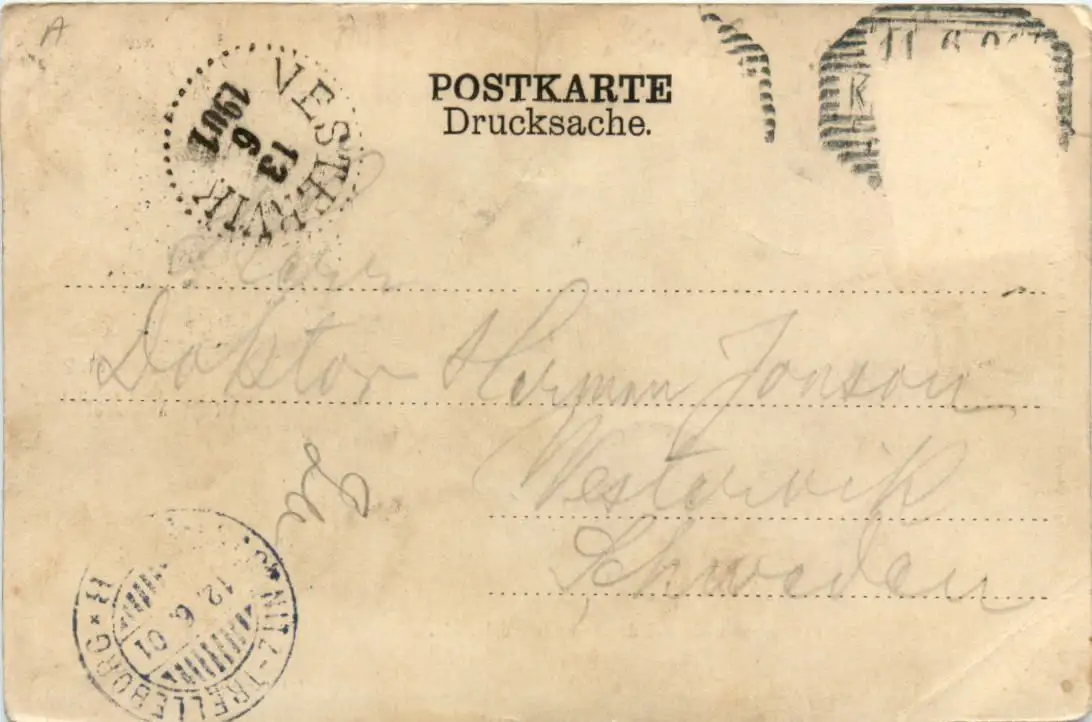 A
VESTERVIK
13
6
1901
POSTKARTE
Drucksache.
11.6.0
Herr
Doktor Herman Jonson
Westervik
Schweden
SASSNITZ-TRELLEBORG * B *
12.6.01